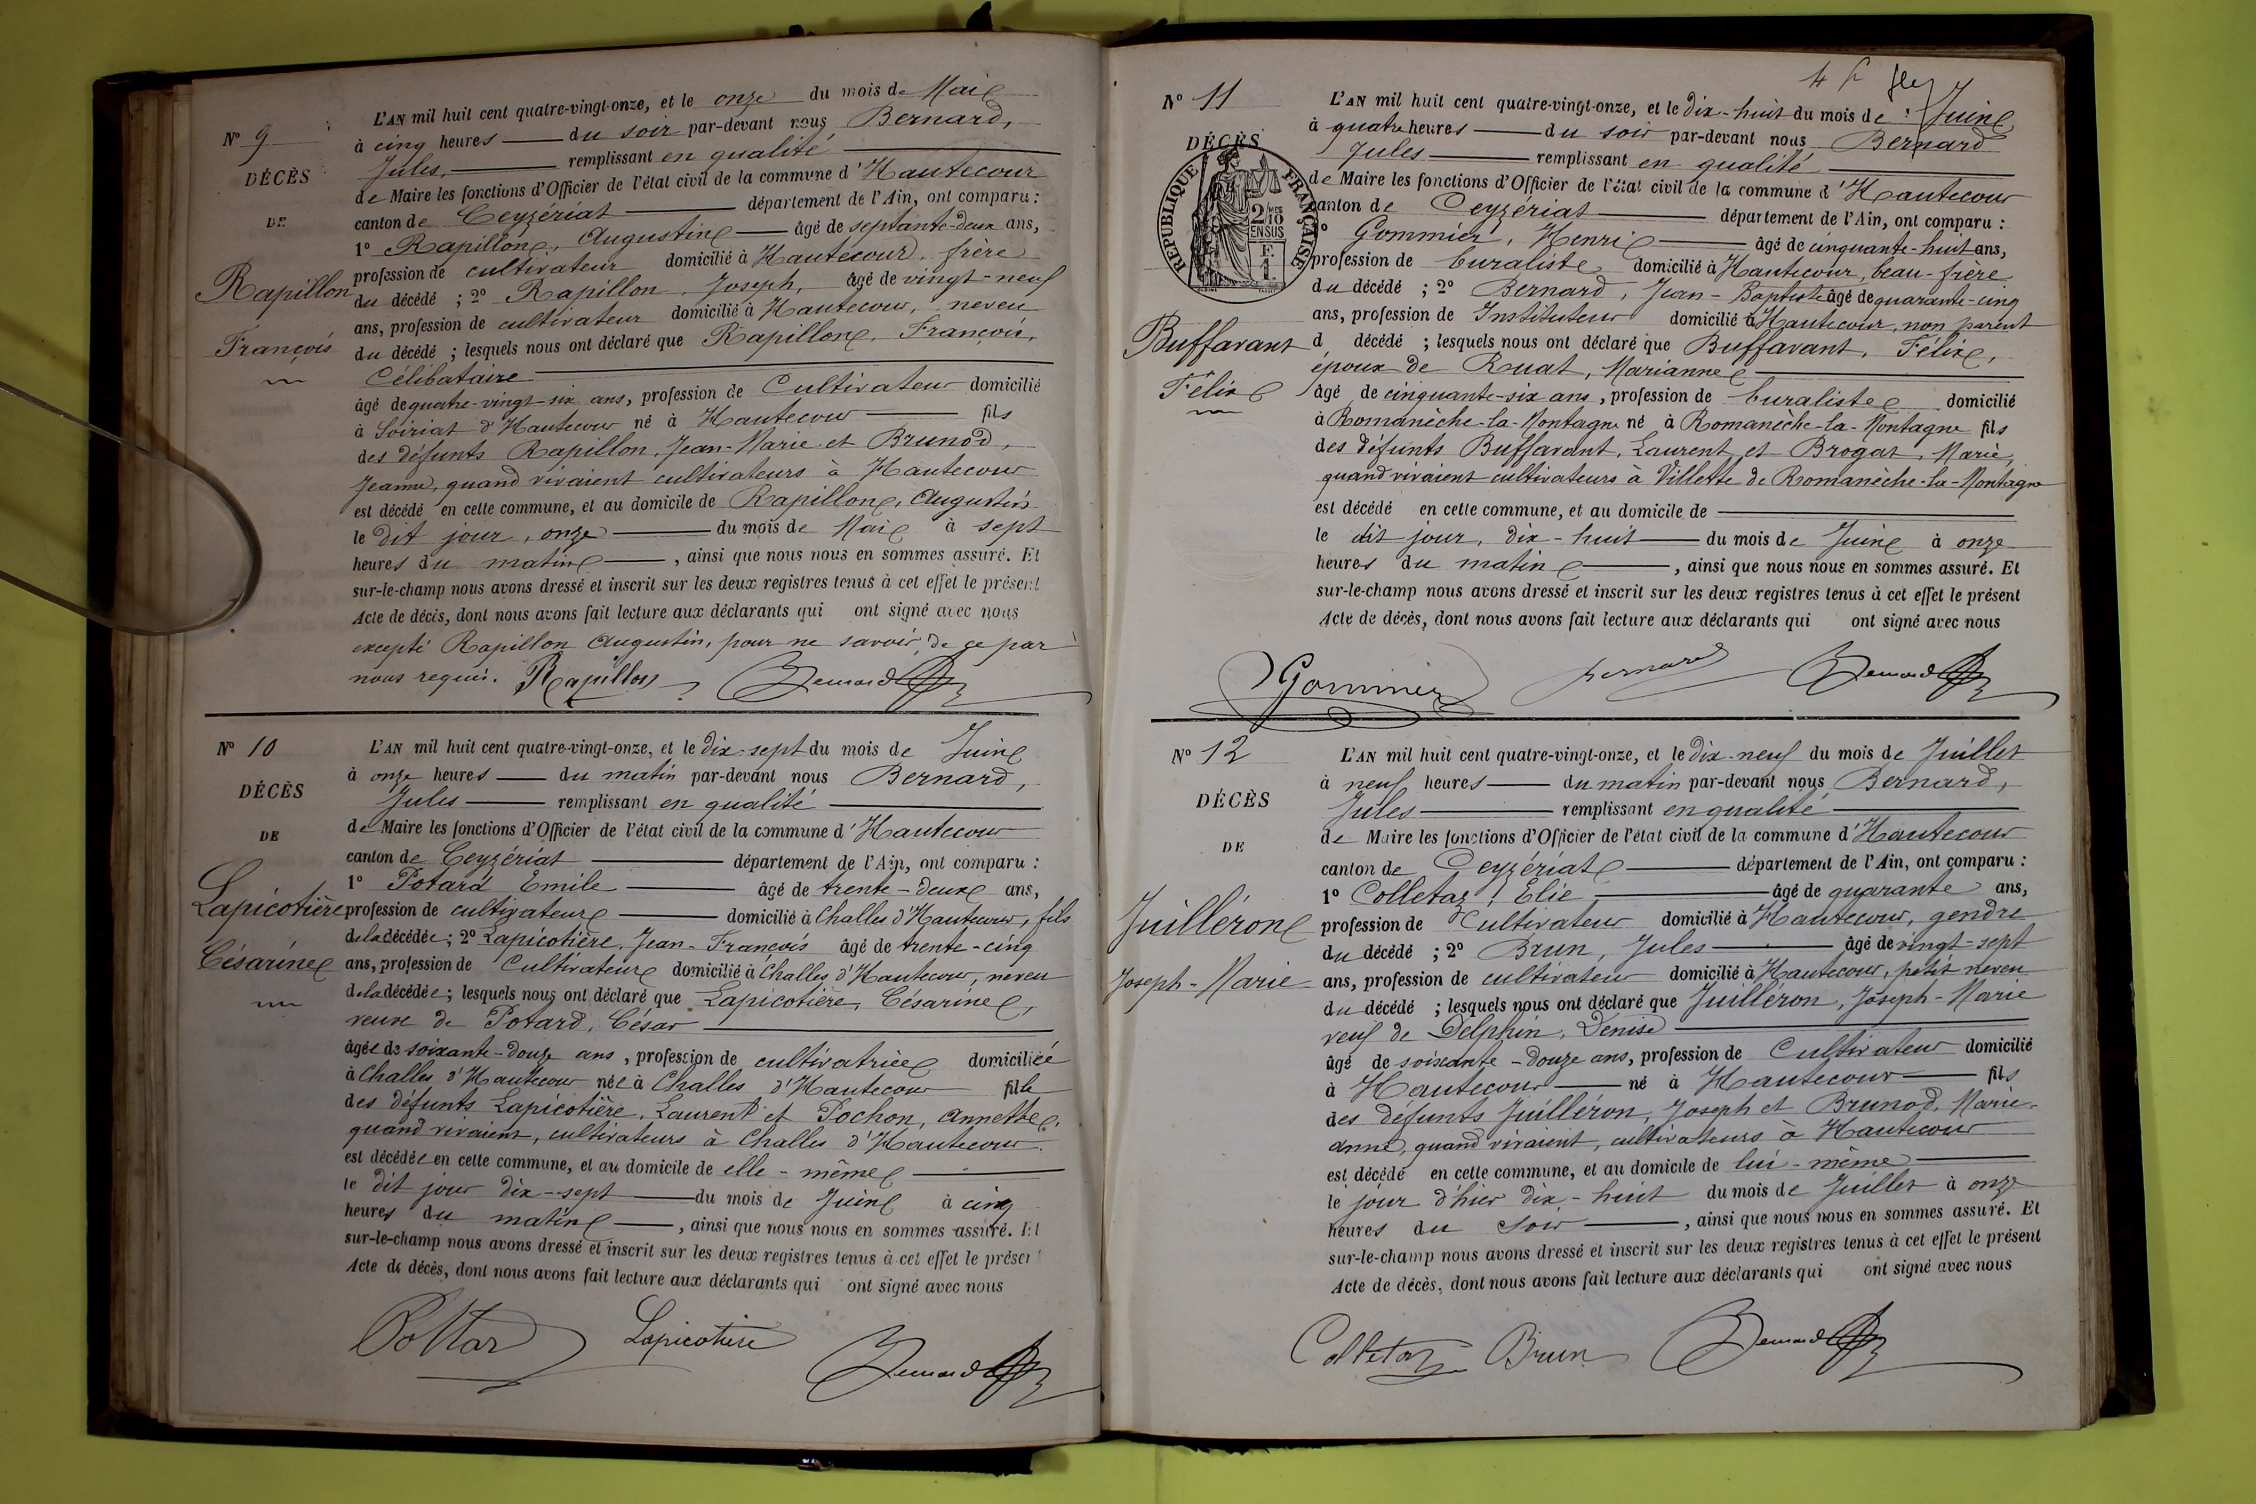 N° 9
DÉCÈS
DE
Rapillon
François
L'AN mil huit cent quatre-vingt-onze, et le onze du mois de Mai
à cinq heures du soir par-devant nous Bernard,
Jules, remplissant en qualité
de Maire les fonctions d'Officier de l'état civil de la commune d'Hautecour
canton de Ceyzériat département de l'Ain, ont comparu :
1° Rapillon, Augustin âgé de septante-deux ans,
profession de cultivateur domicilié à Hautecour, frère
du décédé ; 2° Rapillon, Joseph, âgé de vingt-neuf
ans, profession de cultivateur domicilié à Hautecour, neveu
du décédé ; lesquels nous ont déclaré que Rapillon, François,
Célibataire
âgé de quatre-vingt-six ans, profession de Cultivateur domicilié
à Soiriat d'Hautecour né à Hautecour fils
des défunts Rapillon, Jean-Marie et Brunod,
Jeanne, quand vivaient cultivateurs à Hautecour
est décédé en cette commune, et au domicile de Rapillon, Augustin
le dit jour, onze du mois de Mai à sept
heures du matin, ainsi que nous nous en sommes assuré. Et
sur-le-champ nous avons dressé et inscrit sur les deux registres tenus à cet effet le présent
Acte de décès, dont nous avons fait lecture aux déclarants qui ont signé avec nous
excepté Rapillon Augustin, pour ne savoir, de ce par
nous requis. Rapillon Bernard
N° 10
DÉCÈS
DE
Lapicotière
Césarine
L'AN mil huit cent quatre-vingt-onze, et le dix-sept du mois de Juin
à onze heures du matin par-devant nous Bernard,
Jules remplissant en qualité
de Maire les fonctions d'Officier de l'état civil de la commune d'Hautecour
canton de Ceyzériat département de l'Ain, ont comparu :
1° Potard Emile âgé de trente-deux ans,
profession de cultivateur domicilié à Challes d'Hautecour, fils
de la décédée ; 2° Lapicotière, Jean-François âgé de trente-cinq
ans, profession de Cultivateur domicilié à Challes d'Hautecour, neveu
de la décédée ; lesquels nous ont déclaré que Lapicotière, Césarine,
veuve de Potard, César
âgée de soixante-douze ans, profession de cultivatrice domiciliée
à Challes d'Hautecour née à Challes d'Hautecour fille
des défunts Lapicotière, Laurent et Pochon, Annette,
quand vivaient, cultivateurs à Challes d'Hautecour.
est décédée en cette commune, et au domicile de elle-même
le dit jour dix-sept du mois de Juin à cinq
heures du matin, ainsi que nous nous en sommes assuré. Et
sur-le-champ nous avons dressé et inscrit sur les deux registres tenus à cet effet le présent
Acte de décès, dont nous avons fait lecture aux déclarants qui ont signé avec nous
Pottar Lapicotière Bernard
N° 11
DÉCÈS
RÉPUBLIQUE FRANÇAISE
2/10 EN SUS
Buffavant
Félix
L'AN mil huit cent quatre-vingt-onze, et le dix-huit du mois de Juin
à quatre heures du soir par-devant nous Bernard
Jules remplissant en qualité
de Maire les fonctions d'Officier de l'état civil de la commune d'Hautecour
canton de Ceyzériat département de l'Ain, ont comparu :
1° Gommier, Henri âgé de cinquante-huit ans,
profession de buraliste domicilié à Hautecour, beau-frère
du décédé ; 2° Bernard, Jean-Baptiste âgé de quarante-cinq
ans, profession de Instituteur domicilié à Hautecour, non parent
d décédé ; lesquels nous ont déclaré que Buffavant, Félix,
époux de Ruat, Marianne
âgé de cinquante-six ans, profession de buraliste domicilié
à Romanèche-la-Montagne né à Romanèche-la-Montagne fils
des défunts Buffavant, Laurent et Brogat, Marie,
quand vivaient cultivateurs à Villette de Romanèche-la-Montagne
est décédé en cette commune, et au domicile de
le dit jour, dix-huit du mois de Juin à onze
heures du matin, ainsi que nous nous en sommes assuré. Et
sur-le-champ nous avons dressé et inscrit sur les deux registres tenus à cet effet le présent
Acte de décès, dont nous avons fait lecture aux déclarants qui ont signé avec nous
Gommier Bernard Bernard
N° 12
DÉCÈS
DE
Juilléron
Joseph-Marie
L'AN mil huit cent quatre-vingt-onze, et le dix-neuf du mois de Juillet
à neuf heures du matin par-devant nous Bernard,
Jules remplissant en qualité
de Maire les fonctions d'Officier de l'état civil de la commune d'Hautecour
canton de Ceyzériat département de l'Ain, ont comparu :
1° Colletaz, Elie âgé de quarante ans,
profession de Cultivateur domicilié à Hautecour, gendre
du décédé ; 2° Brun, Jules âgé de vingt-sept
ans, profession de cultivateur domicilié à Hautecour, petit neveu
du décédé ; lesquels nous ont déclaré que Juilléron, Joseph-Marie
veuf de Delphin, Denise
âgé de soixante-douze ans, profession de Cultivateur domicilié
à Hautecour né à Hautecour fils
des défunts Juilléron, Joseph et Brunod, Marie-
Anne, quand vivaient, cultivateurs à Hautecour
est décédé en cette commune, et au domicile de lui-même
le jour d'hier dix-huit du mois de Juillet à onze
heures du soir, ainsi que nous nous en sommes assuré. Et
sur-le-champ nous avons dressé et inscrit sur les deux registres tenus à cet effet le présent
Acte de décès, dont nous avons fait lecture aux déclarants qui ont signé avec nous
Colletaz Brun Bernard